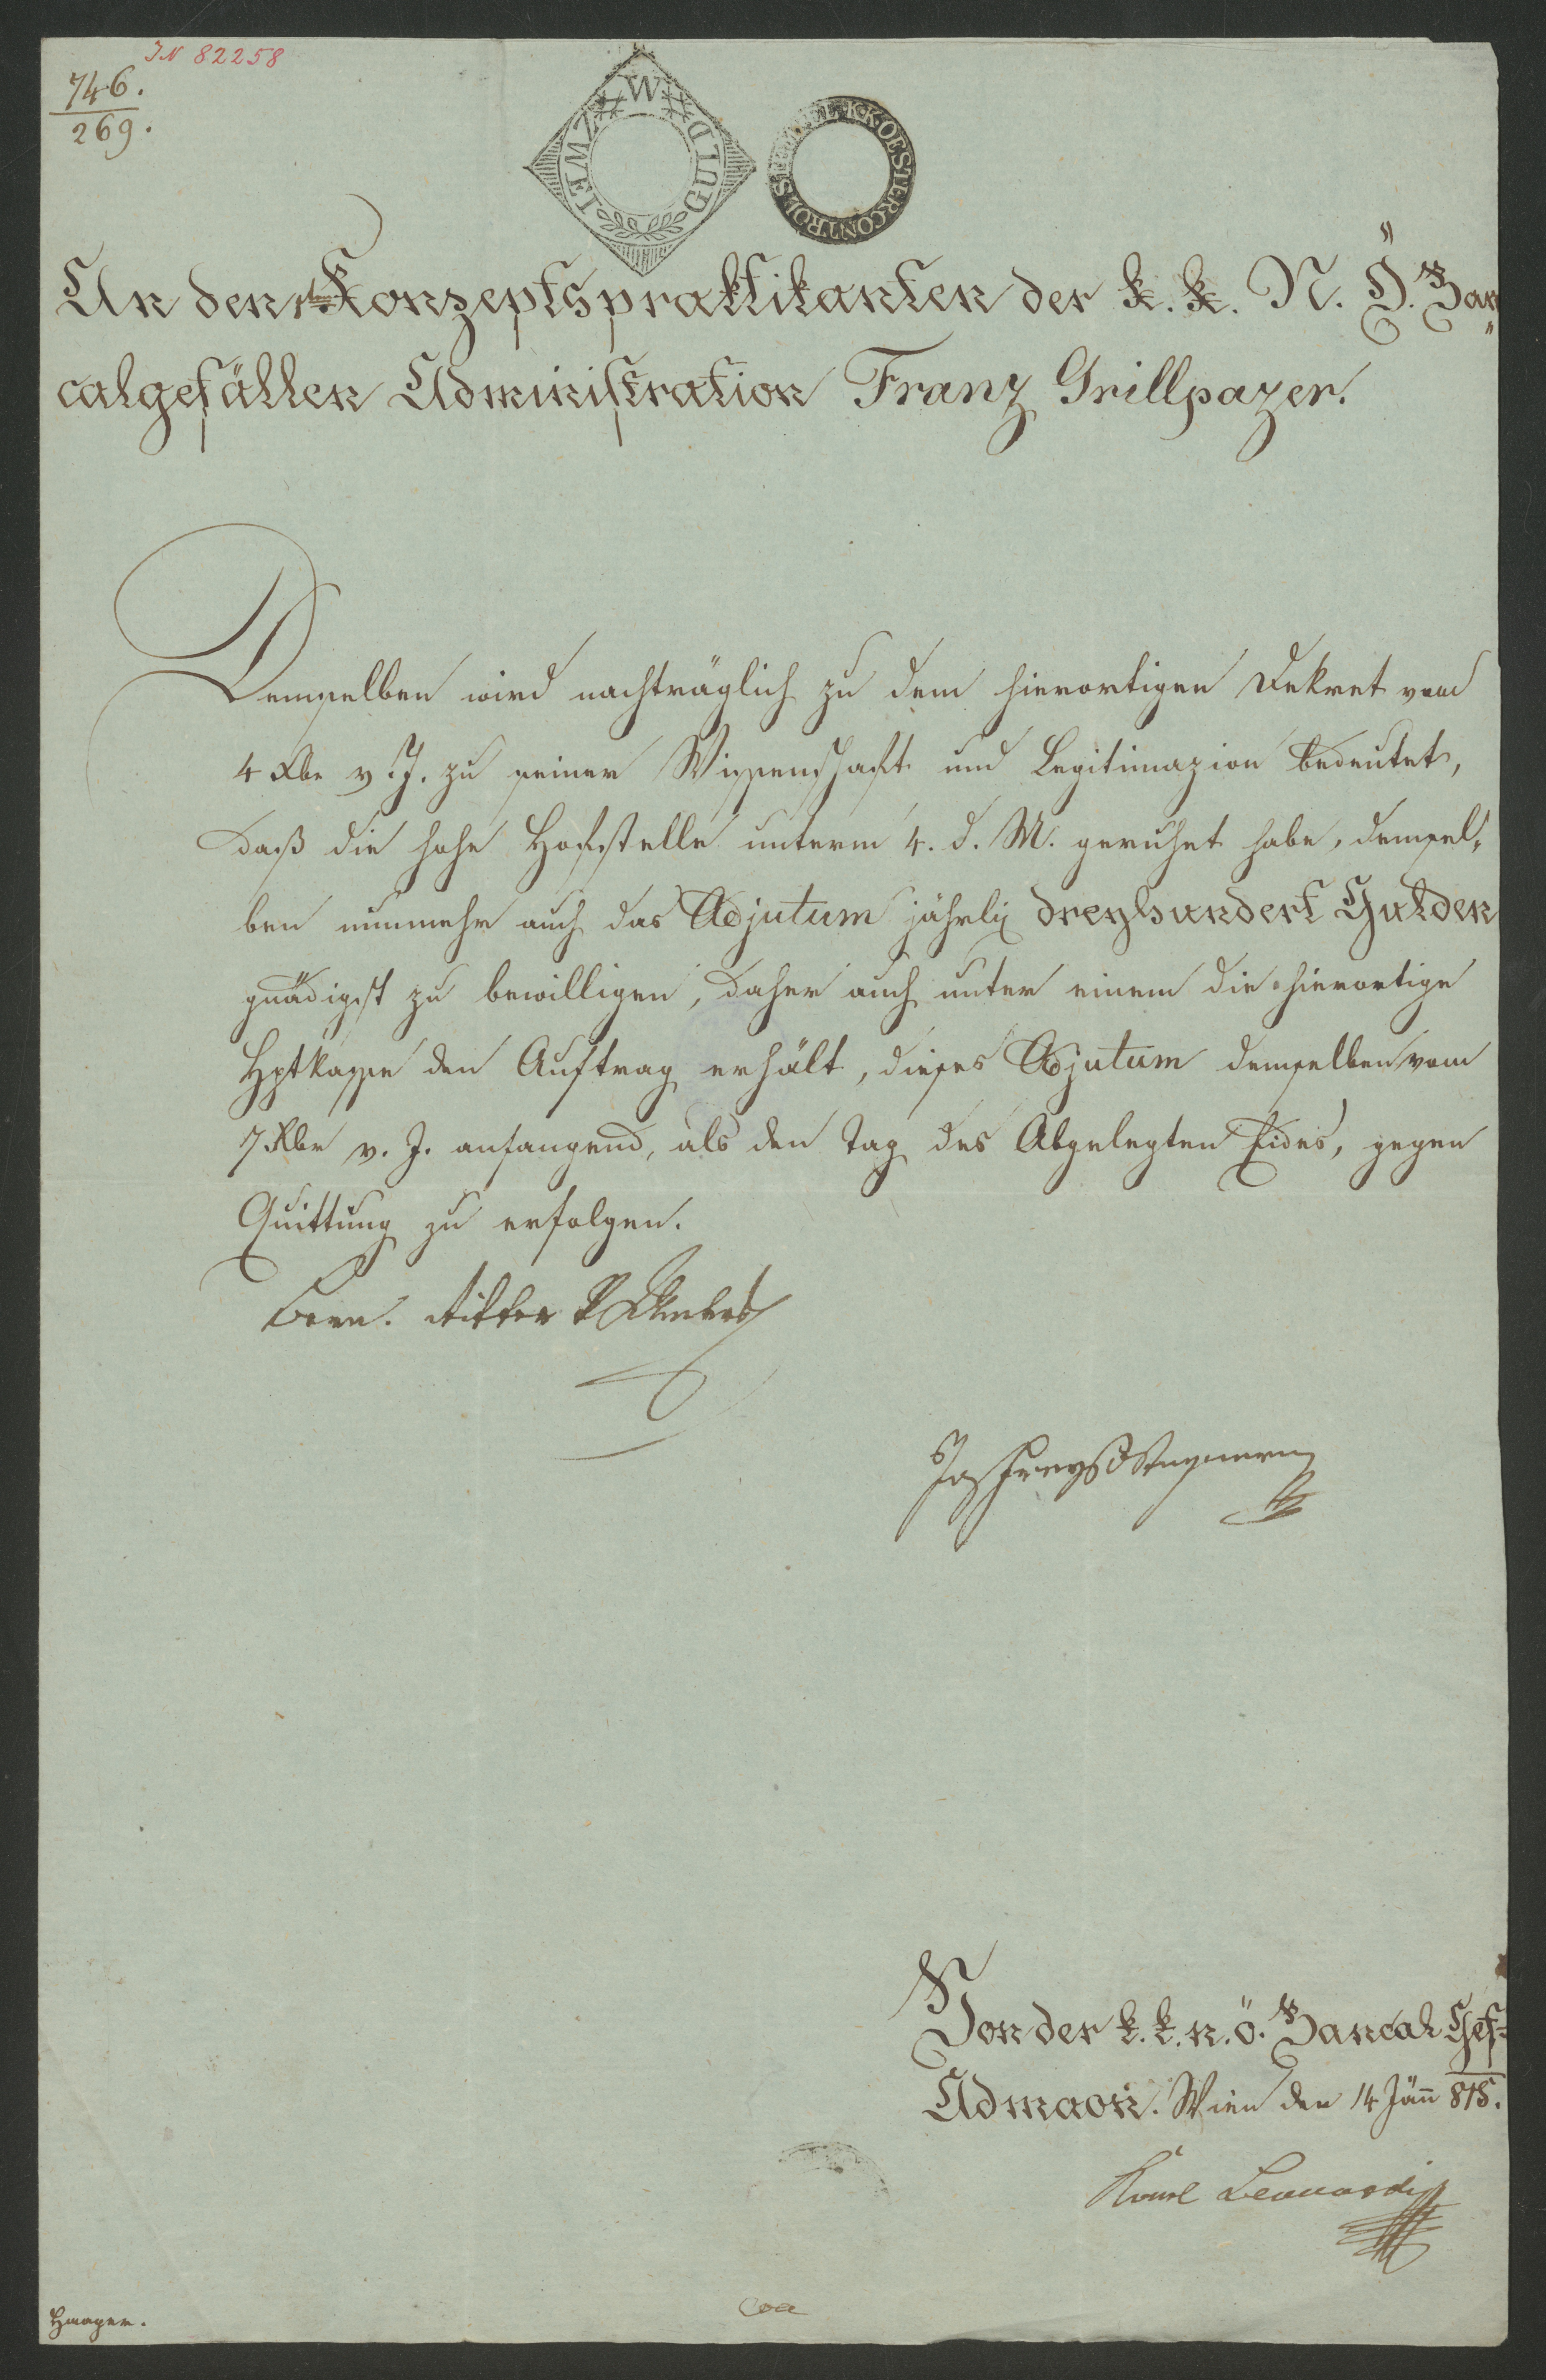 IN 82258
746.
269.
W
ZWEI GULD
K.K. OESTER CONTROL STEMPEL
An den Konzeptspraktikanten der k. k. N. Ö. Ban
calgefällen Administration Franz Grillpazer.
Demselben wird nachträglich zu dem hierortigen Dekret vom
4 Xbr v. J. zu seiner Wissenschaft und Legitimazion bedeutet,
daß die hohe Hofstelle unterm 4. d. M. geruhet habe, demsel„
ben nunmehr auch das Adjutum jährlich dreyhundert Gulden
gnädigst zu bewilligen, daher auch unter einem die hierortige
Hptkasse den Auftrag erhält, dieses Adjutum demselben vom
7 Xbr v. J. anfangend, als den Tag des Abgelegten Eides, gegen
Quittung zu erfolgen.
Ritter
Von der k. k. n. ö. Bancal Gef=
Admaon. Wien den 14 Jäñ 815.
Karl Leonardi